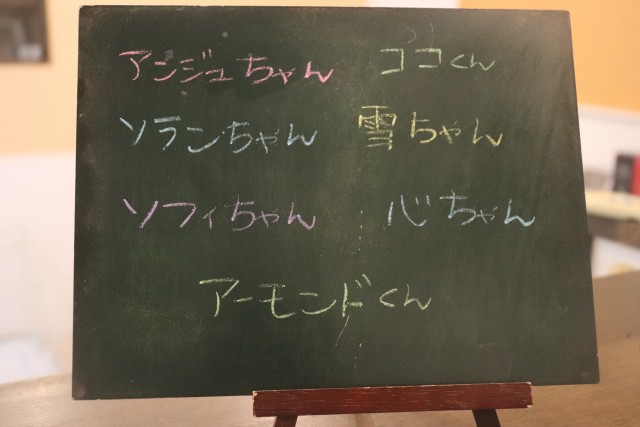 アンジュちゃん ココくん
ソランちゃん 雪ちゃん
ソフィちゃん 心ちゃん
アーモンドくん